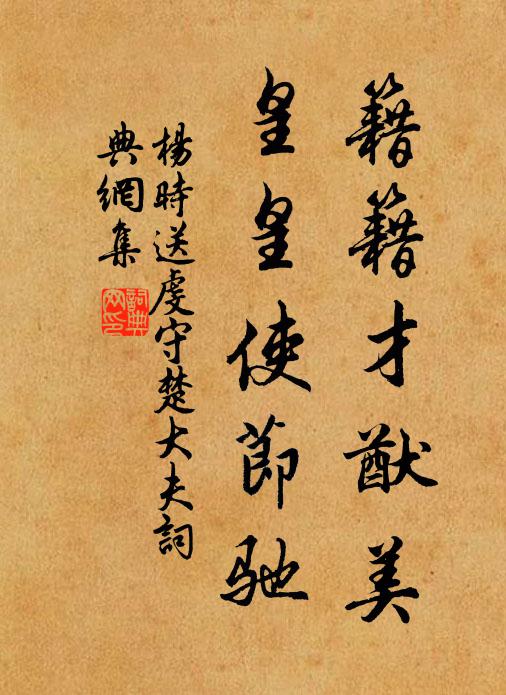 籍籍才猷美
皇皇使節馳
楊時送虔守楚大夫詞
典網集
詞典網印